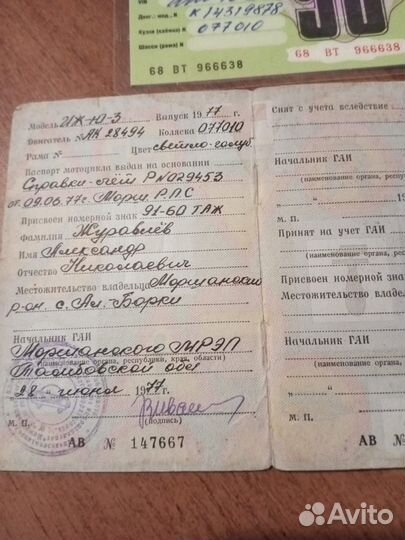 Двиг.: мод., N К14319878
Кузов (кабина) N 077010
Шасси (рама) N
68 ВТ 966638
68 ВТ 966638
Модель ИЖ-Ю-3 Выпуск 1977 г.
Двигатель № АК 28494 Коляска 077010
Рама № Цвет светло-голуб.
Паспорт мотоцикла выдан на основании
Справки-счёт Р№029453
от 09.06.77г. Морш. Р.П.С
Присвоен номерной знак 91-60 ТАЖ
Фамилия Журавлев
Имя Александр
Отчество Николаевич
Местожительство владельца Моршанский
р-он. с. Ал-Борки
Начальник ГАИ
Моршанского МРЭП
(наименование органа, республики, края, области)
Тамбовской обл
„28 “ июня 1977 г.
М. П. (подпись)
АВ № 147667
Снят с учета вследствие
Начальник ГАИ
(наименование органа, респуб
„ “
М. П.
Принят на учет ГАИ
(наименование органа,
Присвоен номерной знак
Местожительство владель
Начальник ГАИ
(наименование органа, респуб
„ “
М. П.
АВ №
Avito